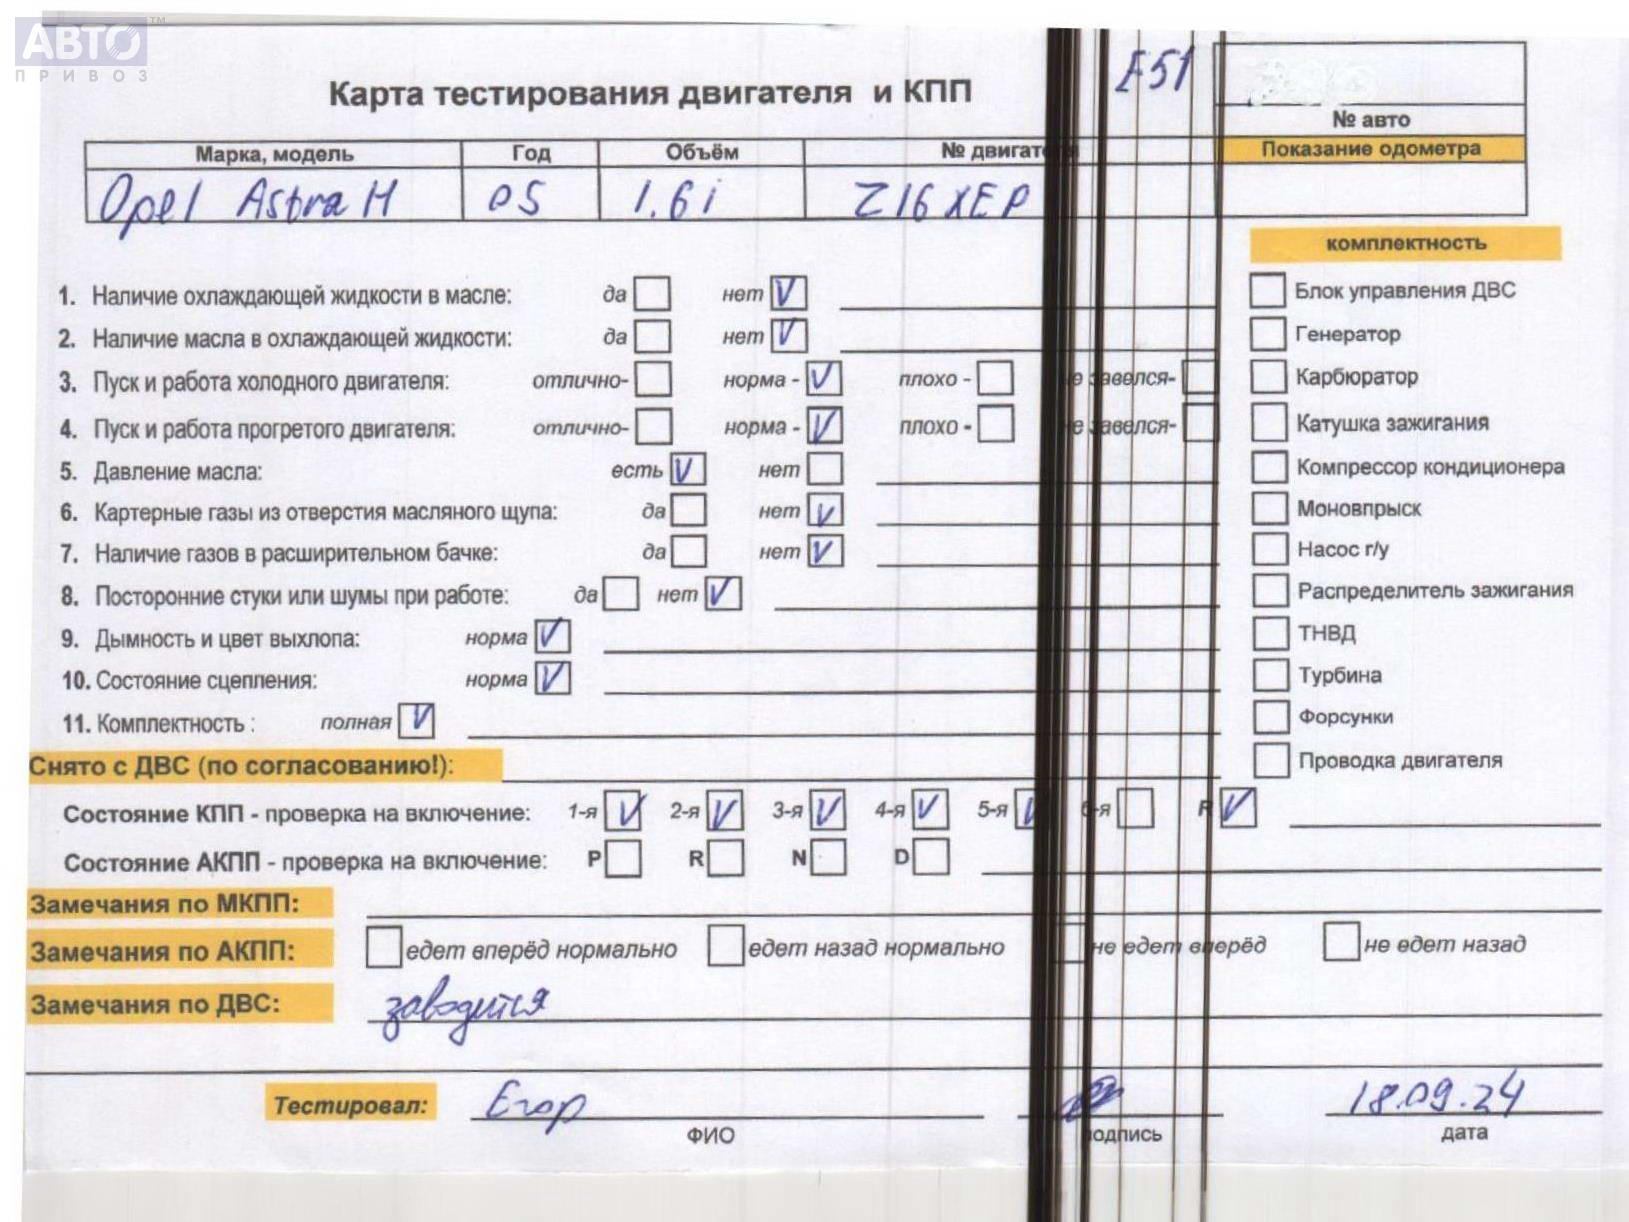 АВТО™
ПРИВОЗ
Карта тестирования двигателя и КПП
E51
№ авто
Марка, модель Год Объём № двигателя Показание одометра
Opel Astra H 05 1.6i Z16XEP
комплектность
1. Наличие охлаждающей жидкости в масле: да нет V Блок управления ДВС
2. Наличие масла в охлаждающей жидкости: да нет V Генератор
3. Пуск и работа холодного двигателя: отлично- норма - V плохо - не завелся- Карбюратор
4. Пуск и работа прогретого двигателя: отлично- норма - V плохо - не завелся- Катушка зажигания
5. Давление масла: есть V нет Компрессор кондиционера
6. Картерные газы из отверстия масляного щупа: да нет V Моновпрыск
7. Наличие газов в расширительном бачке: да нет V Насос г/у
8. Посторонние стуки или шумы при работе: да нет V Распределитель зажигания
9. Дымность и цвет выхлопа: норма V ТНВД
10. Состояние сцепления: норма V Турбина
11. Комплектность : полная V Форсунки
Снято с ДВС (по согласованию!): Проводка двигателя
Состояние КПП - проверка на включение: 1-я V 2-я V 3-я V 4-я V 5-я V 6-я R V
Состояние АКПП - проверка на включение: P R N D
Замечания по МКПП:
Замечания по АКПП: едет вперёд нормально едет назад нормально не едет вперёд не едет назад
Замечания по ДВС: заводится
Тестировал: Егор 18.09.24
ФИО подпись дата